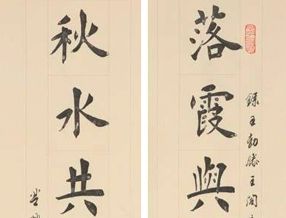 落霞與
秋水共
錄王勃滕王閣